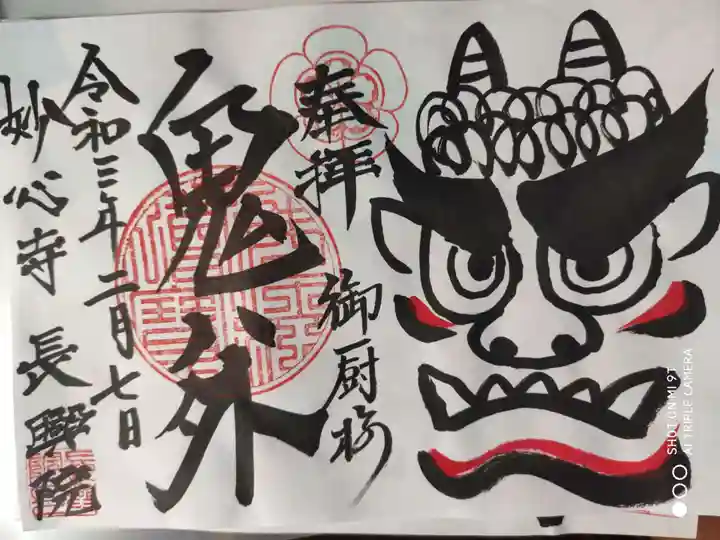 奉拝
御厨様
鬼外
令和三年二月七日
妙心寺 長興院
SHOT ON MI 9T
AI TRIPLE CAMERA